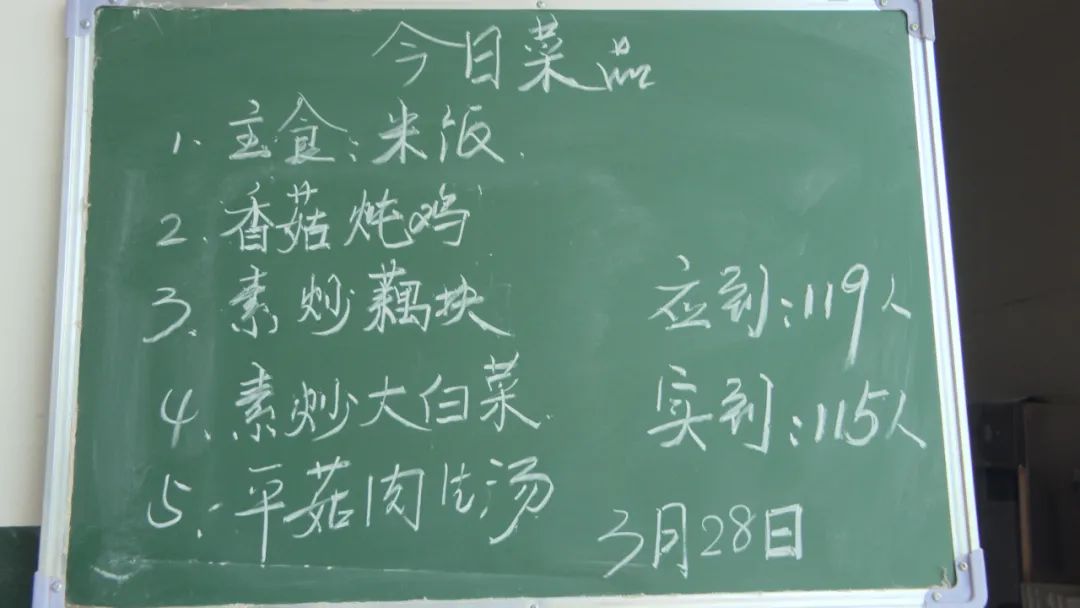 今日菜品
1. 主食：米饭.
2. 香菇炖鸡
3. 素炒藕块
4. 素炒大白菜
5. 平菇肉片汤
应到：119人
实到：115人
3月28日